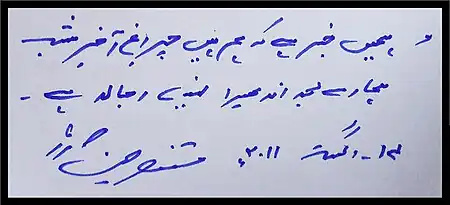 ہمیں خبر ہے کہ ہم ہیں چراغِ آخرِ شب
ہمارے بعد اندھیرا نہیں اجالا ہے ۔
۱۳ ۔ اگست ۲۰۱۱ء